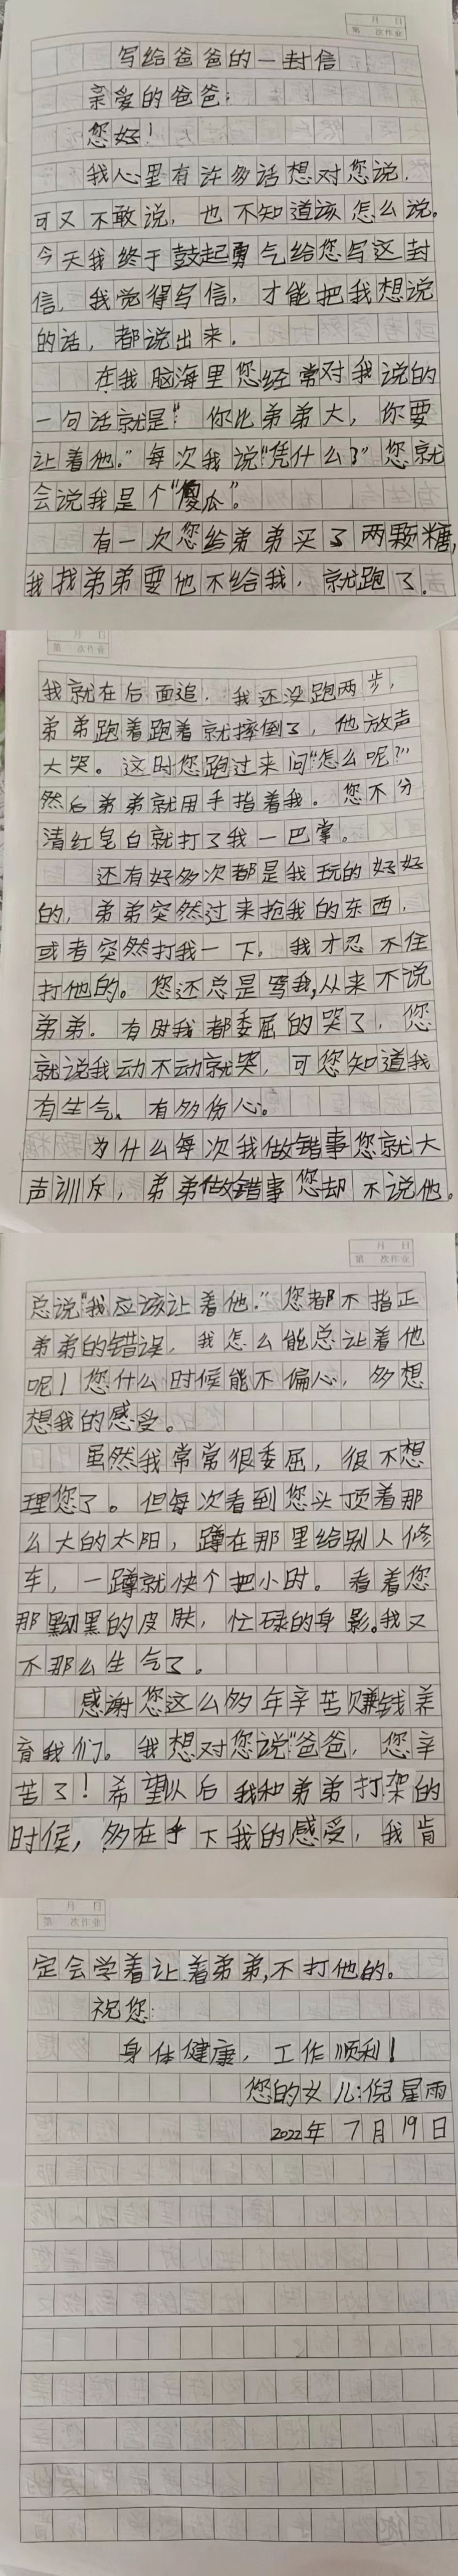 月 日
第 次作业
写给爸爸的一封信
亲爱的爸爸：
您好！
我心里有许多话想对您说，
可又不敢说，也不知道该怎么说。
今天我终于鼓起勇气给您写这封
信，我觉得写信，才能把我想说
的话，都说出来。
在我脑海里您经常对我说的
一句话就是“你比弟弟大，你要
让着他。”每次我说“凭什么？”您就
会说我是个“傻瓜”。
有一次您给弟弟买了两颗糖，
我找弟弟要他不给我，就跑了。
月 日
第 次作业
我就在后面追，我还没跑两步，
弟弟跑着跑着就摔倒了，他放声
大哭。这时您跑过来问“怎么呢？”
然后弟弟就用手指着我。您不分
清红皂白就打了我一巴掌。
还有好多次都是我玩的好好
的，弟弟突然过来抢我的东西，
或者突然打我一下，我才忍不住
打他的。您还总是骂我，从来不说
弟弟。有时我都委屈的哭了，您
就说我动不动就哭，可您知道我
有生气、有多伤心。
为什么每次我做错事您就大
声训斥，弟弟做错事您却不说他。
月 日
第 次作业
总说“我应该让着他。”您都不指正
弟弟的错误，我怎么能总让着他
呢！您什么时候能不偏心，多想
想我的感受。
虽然我常常很委屈，很不想
理您了。但每次看到您头顶着那
么大的太阳，蹲在那里给别人修
车，一蹲就快个把小时。看着您
那黝黑的皮肤，忙碌的身影。我又
不那么生气了。
感谢您这么多年辛苦赚钱养
育我们。我想对您说“爸爸，您辛
苦了！希望以后我和弟弟打架的
时候，多在乎下我的感受，我肯
月 日
第 次作业
定会学着让着弟弟，不打他的。
祝您：
身体健康，工作顺利！
您的女儿：倪星雨
2022年7月19日